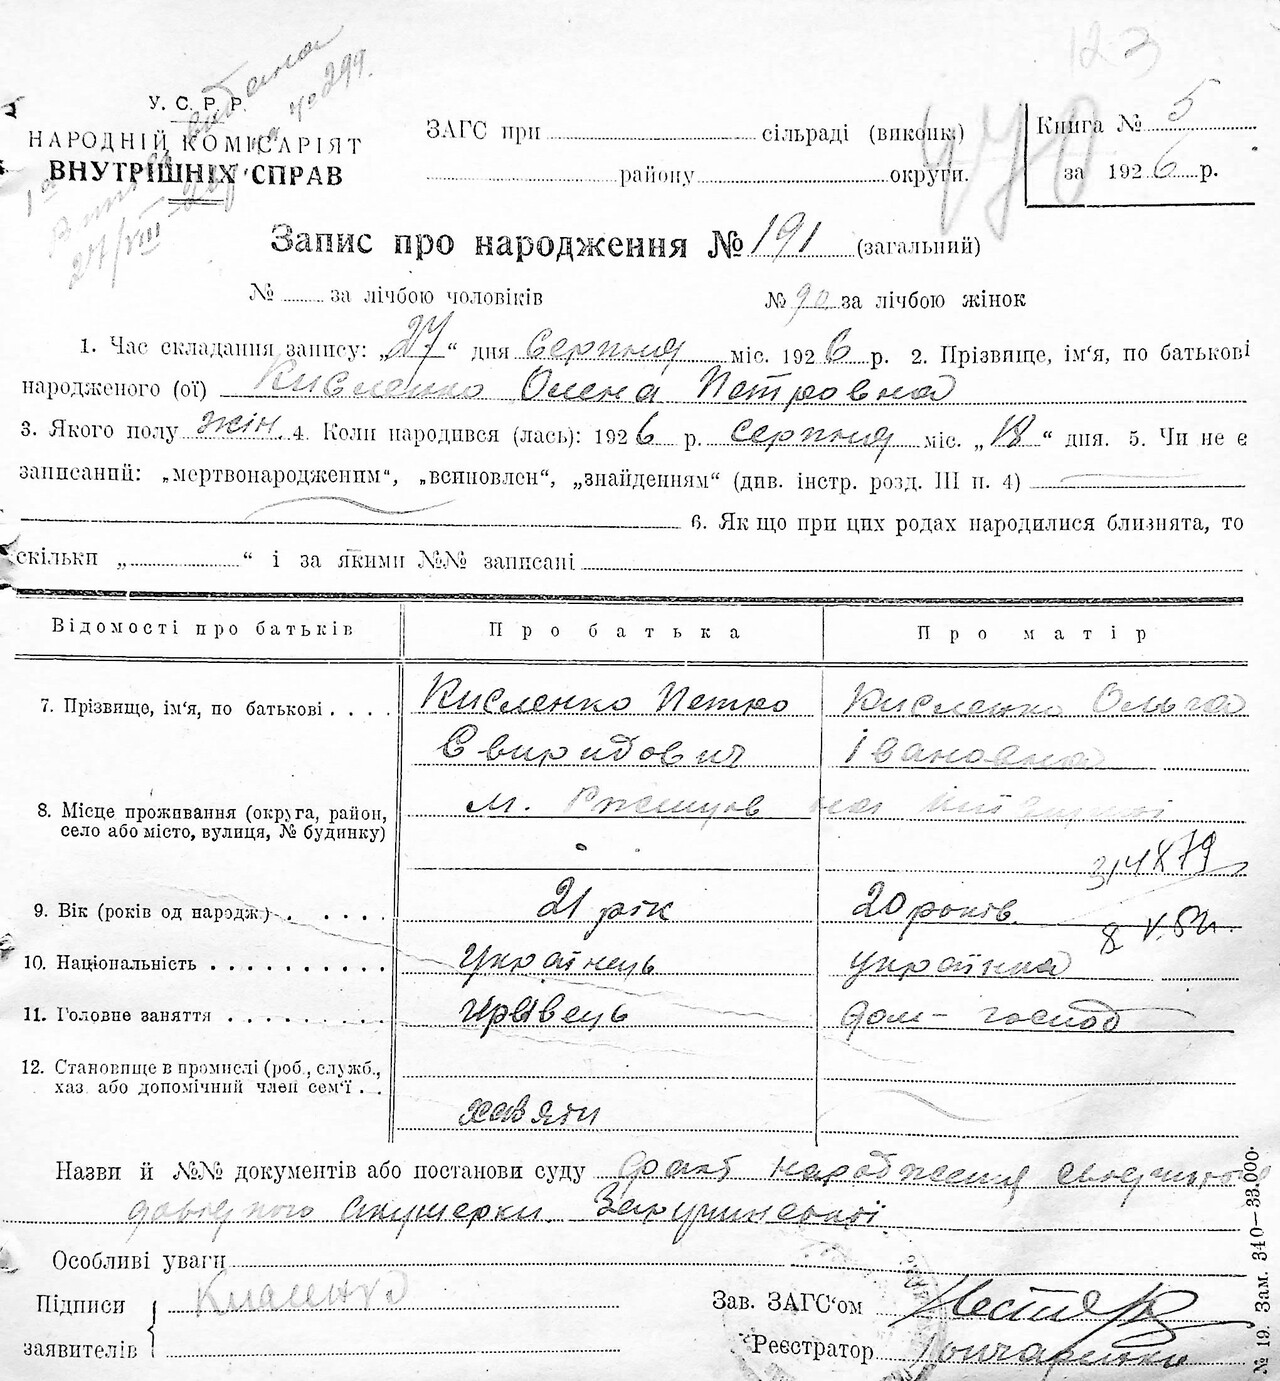 123
1а
видана
за № 299.
27/VIII
470
У. С. Р. Р.
НАРОДНІЙ КОМІСАРІЯТ
ВНУТРІШНІХ СПРАВ
ЗАГС при сільраді (виконк.)
району округи.
Книга № 5
за 1926 р.
Запис про народження № 191 (загальний)
№ за лічбою чоловіків № 90 за лічбою жінок
1. Час складання запису: „27“ дня серпня міс. 1926 р. 2. Прізвище, ім'я, по батькові
народженого (ої) Кисленко Олена Петровна
3. Якого полу жін. 4. Коли народився (лась): 1926 р. серпня міс. „18“ дня. 5. Чи не є
записаний: „мертвонародженим“, „всиновлен“, „знайденням“ (див. інстр. розд. III п. 4)
6. Як що при цих родах народилися близнята, то
скільки „ “ і за якими №№ записані
Відомості про батьків Про батька Про матір
7. Прізвище, ім'я, по батькові . . . . Кисленко Петро Кисленко Ольга
Свиридович Івановна
8. Місце проживання (округа, район,
село або місто, вулиця, № будинку)
м. Ржищов на
9. Вік (років од народж.) . . . . . 21 рік 20 років
10. Національність . . . . . . . . . . Українець українка
11. Головне заняття . . . . . . . . . дом-господ
12. Становище в промислі (роб., служб.,
хаз. або допомічний член сем'ї . .
Назви й №№ документів або постанови суду факт народження
акушерки
Особливі уваги
Підписи
заявителів
Кисленко
Зав. ЗАГС'ом
Реєстратор Гончаренко
№ 19. Зам. 340—33.000.